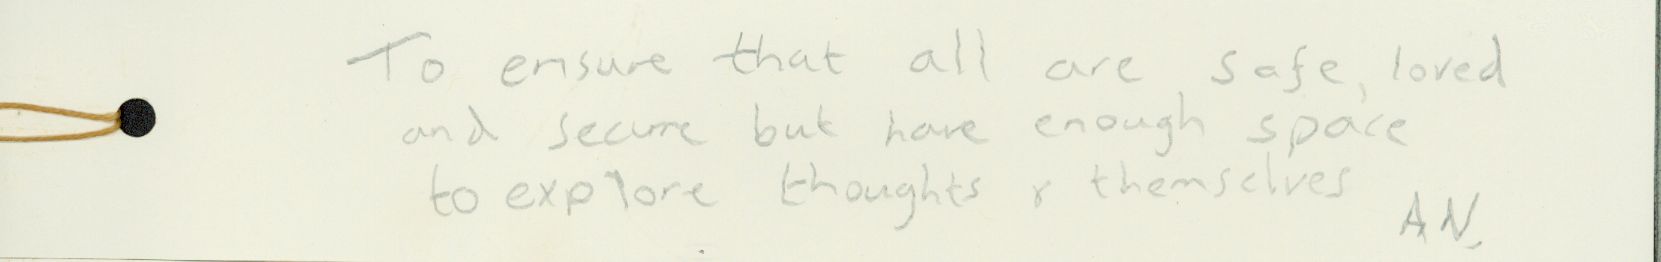 To ensure that all are safe, loved
and secure but have enough space
to explore thoughts & themselves
AN